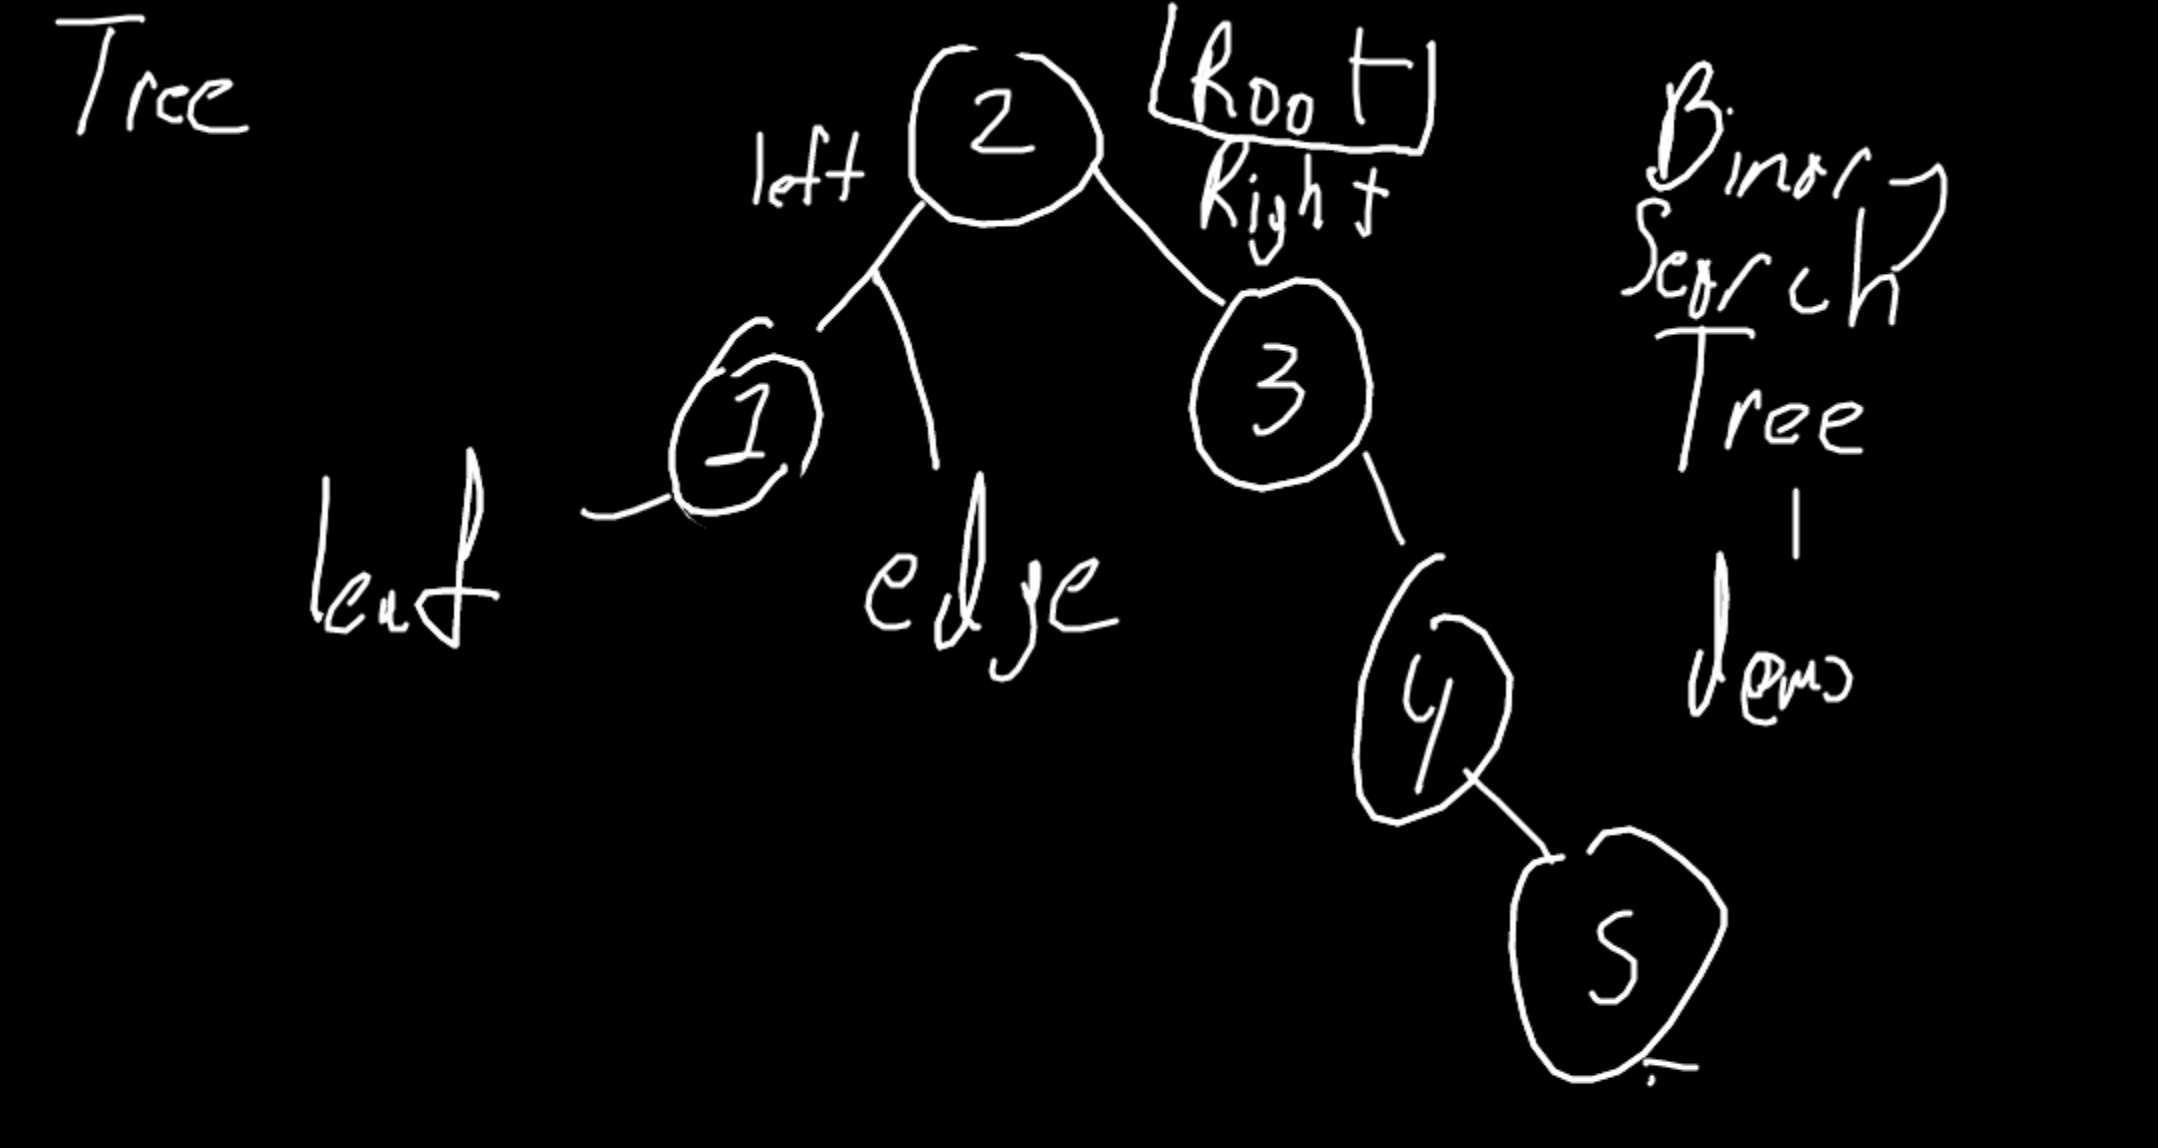 Tree
2
Root
left
Right
1
3
leaf
edge
4
5
Binary
Search
Tree
demo